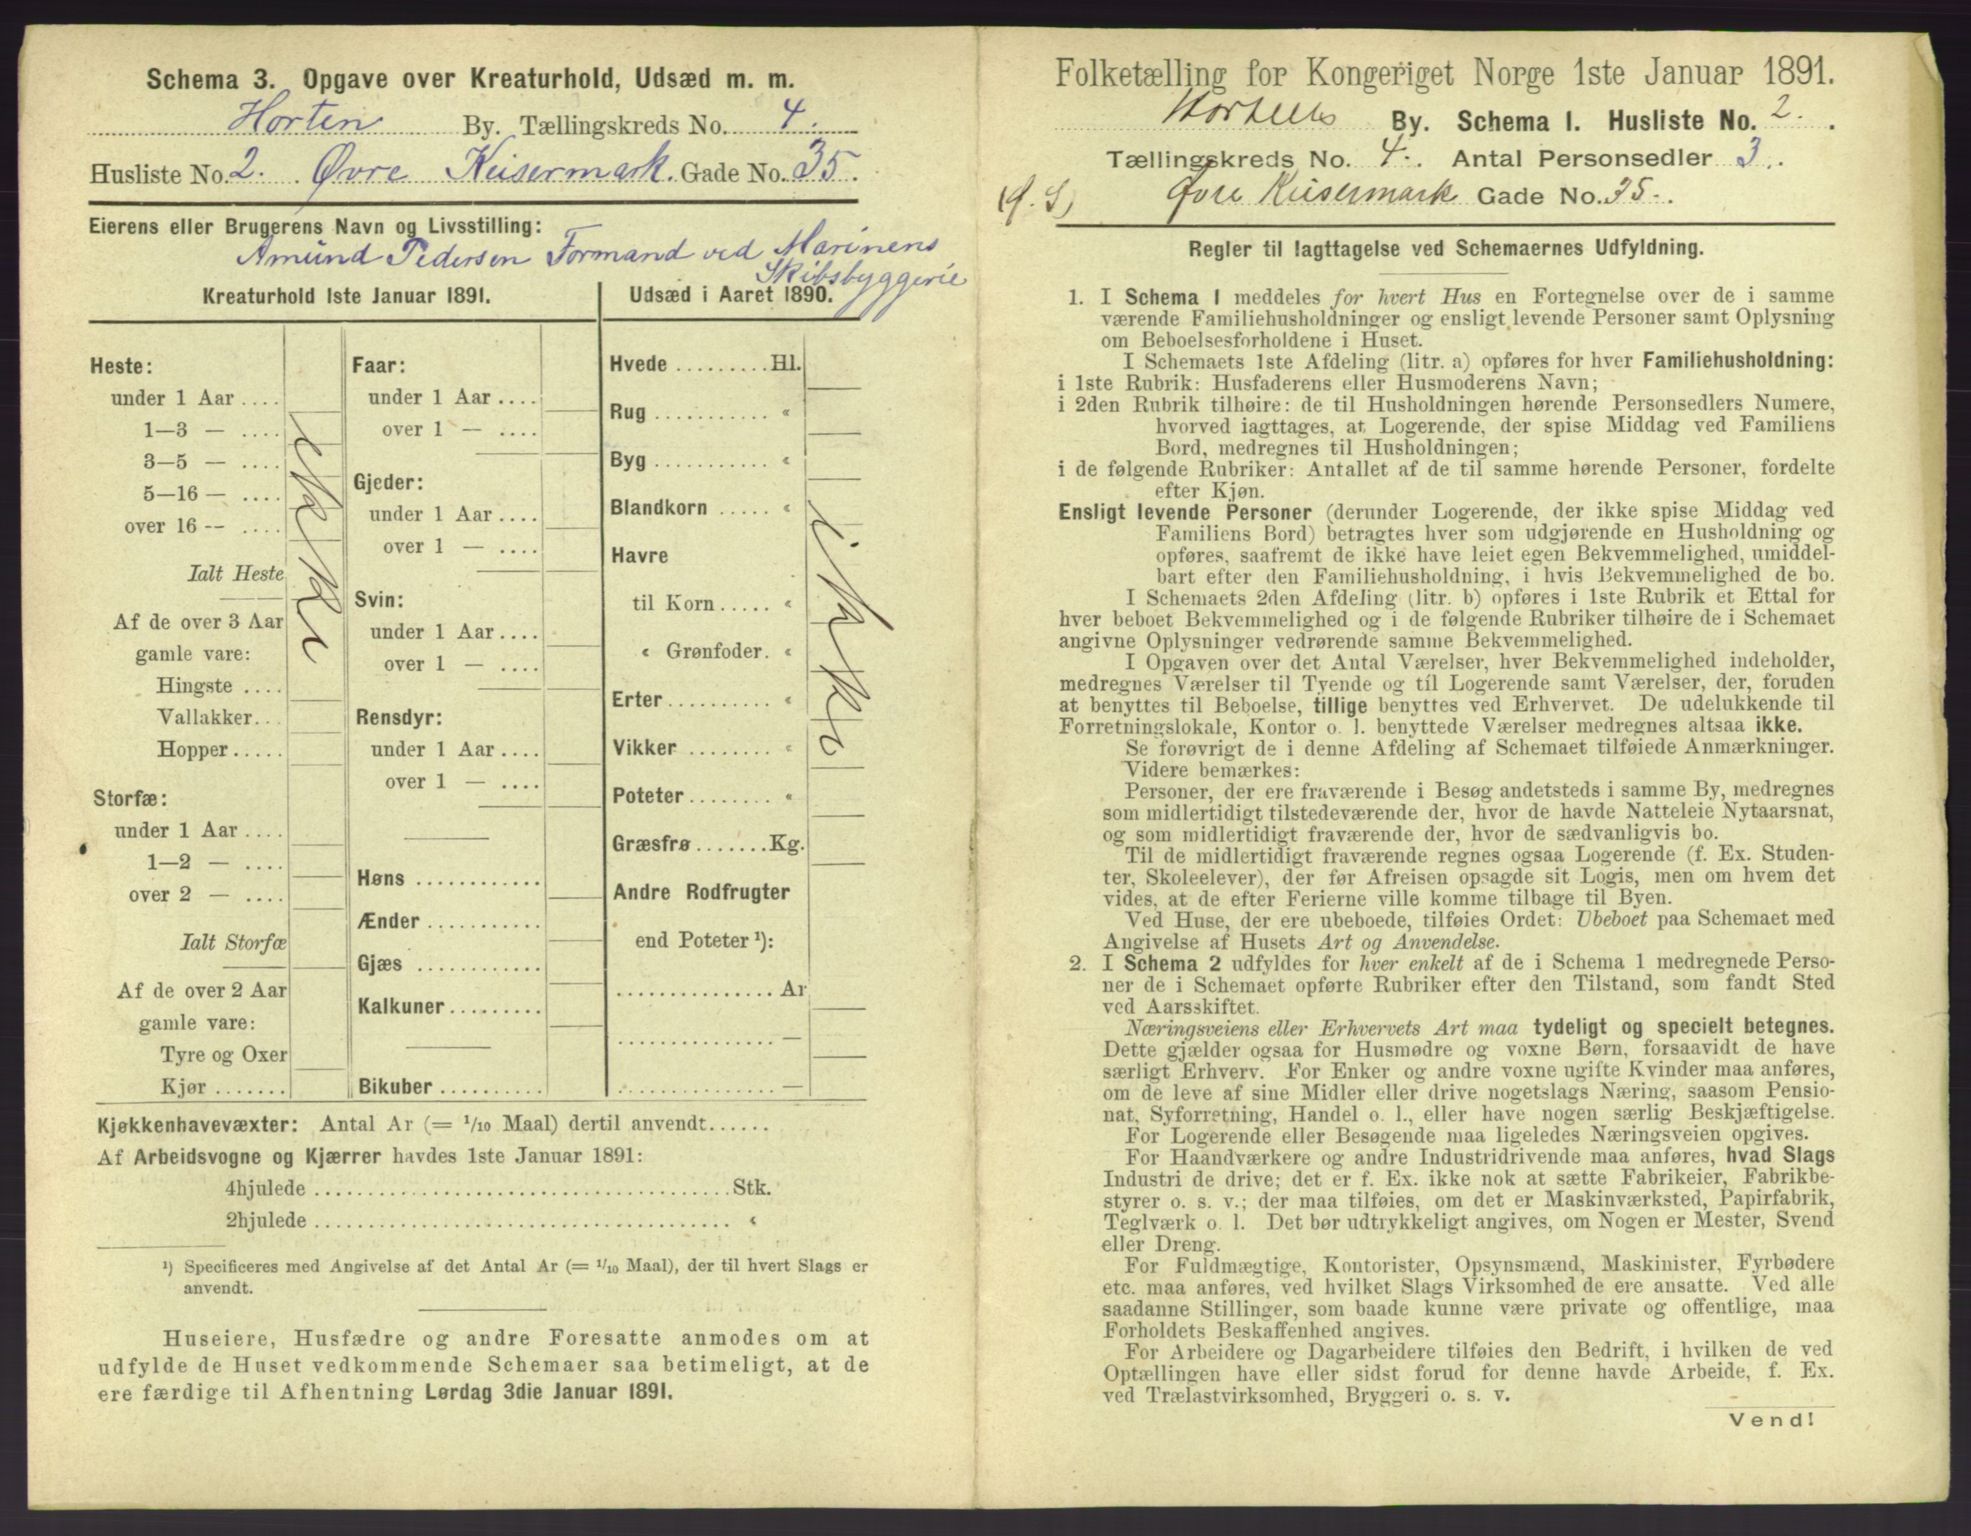 Schema 3. Opgave over Kreaturhold, Udsæd m. m.
Horten By. Tællingskreds No. 4.
Husliste No. 2. Øvre Keisermark. Gade No. 35.
Eierens eller Brugerens Navn og Livsstilling:
Amund Pedersen Formand ved Marinens
Skibsbyggerie
Kreaturhold 1ste Januar 1891.
Udsæd i Aaret 1890.
Heste:
under 1 Aar ....
1—3 — ....
3—5 — ....
5—16 — ....
over 16 -- ....
Ialt Heste
Af de over 3 Aar
gamle vare:
Hingste ....
Vallakker...
Hopper .....
Storfæ:
under 1 Aar ....
1—2 — ....
over 2 — ....
Ialt Storfæ
Af de over 2 Aar
gamle vare:
Tyre og Oxer
Kjør .......
Faar:
under 1 Aar ....
over 1 — ....
Gjeder:
under 1 Aar ....
over 1 — ....
Svin:
under 1 Aar ....
over 1 — ....
Rensdyr:
under 1 Aar ....
over 1 — ....
Høns ............
Ænder ...........
Gjæs ............
Kalkuner..........
Bikuber ..........
Hvede .........Hl.
Rug ........... «
Byg ........... «
Blandkorn ..... «
Havre
til Korn ..... «
« Grønfoder. «
Erter .......... «
Vikker ........ «
Poteter ........ «
Græsfrø .......Kg.
Andre Rodfrugter
end Poteter ¹):
............... Ar
............... —
............... —
ikke
ikke
Kjøkkenhavevæxter: Antal Ar (= 1/10 Maal) dertil anvendt......
Af Arbeidsvogne og Kjærrer havdes 1ste Januar 1891:
4hjulede ....................................... Stk.
2hjulede ....................................... «
¹) Specificeres med Angivelse af det Antal Ar (= 1/10 Maal), der til hvert Slags er
anvendt.
Huseiere, Husfædre og andre Foresatte anmodes om at
udfylde de Huset vedkommende Schemaer saa betimeligt, at de
ere færdige til Afhentning Lørdag 3die Januar 1891.
Folketælling for Kongeriget Norge 1ste Januar 1891.
Hortens By. Schema I. Husliste No. 2.
Tællingskreds No. 4. Antal Personsedler 3.
Øvre Keisermark Gade No. 35.
Regler til Iagttagelse ved Schemaernes Udfyldning.
1. I Schema 1 meddeles for hvert Hus en Fortegnelse over de i samme
værende Familiehusholdninger og ensligt levende Personer samt Oplysning
om Beboelsesforholdene i Huset.
I Schemaets 1ste Afdeling (litr. a) opføres for hver Familiehusholdning:
i 1ste Rubrik: Husfaderens eller Husmoderens Navn;
i 2den Rubrik tilhøire: de til Husholdningen hørende Personsedlers Numere,
hvorved iagttages, at Logerende, der spise Middag ved Familiens
Bord, medregnes til Husholdningen;
i de følgende Rubriker: Antallet af de til samme hørende Personer, fordelte
efter Kjøn.
Ensligt levende Personer (derunder Logerende, der ikke spise Middag ved
Familiens Bord) betragtes hver som udgjørende en Husholdning og
opføres, saafremt de ikke have leiet egen Bekvemmelighed, umiddel-
bart efter den Familiehusholdning, i hvis Bekvemmelighed de bo.
I Schemaets 2den Afdeling (litr. b) opføres i 1ste Rubrik et Ettal for
hver beboet Bekvemmelighed og i de følgende Rubriker tilhøire de i Schemaet
angivne Oplysninger vedrørende samme Bekvemmelighed.
I Opgaven over det Antal Værelser, hver Bekvemmelighed indeholder,
medregnes Værelser til Tyende og til Logerende samt Værelser, der, foruden
at benyttes til Beboelse, tillige benyttes ved Erhvervet. De udelukkende til
Forretningslokale, Kontor o. l. benyttede Værelser medregnes altsaa ikke.
Se forøvrigt de i denne Afdeling af Schemaet tilføiede Anmærkninger.
Videre bemærkes:
Personer, der ere fraværende i Besøg andetsteds i samme By, medregnes
som midlertidigt tilstedeværende der, hvor de havde Natteleie Nytaarsnat,
og som midlertidigt fraværende der, hvor de sædvanligvis bo.
Til de midlertidigt fraværende regnes ogsaa Logerende (f. Ex. Studen-
ter, Skoleelever), der før Afreisen opsagde sit Logis, men om hvem det
vides, at de efter Ferierne ville komme tilbage til Byen.
Ved Huse, der ere ubeboede, tilføies Ordet: Ubeboet paa Schemaet med
Angivelse af Husets Art og Anvendelse.
2. I Schema 2 udfyldes for hver enkelt af de i Schema 1 medregnede Perso-
ner de i Schemaet opførte Rubriker efter den Tilstand, som fandt Sted
ved Aarsskiftet.
Næringsveiens eller Erhvervets Art maa tydeligt og specielt betegnes.
Dette gjælder ogsaa for Husmødre og voxne Børn, forsaavidt de have
særligt Erhverv. For Enker og andre voxne ugifte Kvinder maa anføres,
om de leve af sine Midler eller drive nogetslags Næring, saasom Pensio-
nat, Syforretning, Handel o. l., eller have nogen særlig Beskjæftigelse.
For Logerende eller Besøgende maa ligeledes Næringsveien opgives.
For Haandværkere og andre Industridrivende maa anføres, hvad Slags
Industri de drive; det er f. Ex. ikke nok at sætte Fabrikeier, Fabrikbe-
styrer o. s. v.; der maa tilføies, om det er Maskinværksted, Papirfabrik,
Teglværk o. l. Det bør udtrykkeligt angives, om Nogen er Mester, Svend
eller Dreng.
For Fuldmægtige, Kontorister, Opsynsmænd, Maskinister, Fyrbødere
etc. maa anføres, ved hvilket Slags Virksomhed de ere ansatte. Ved alle
saadanne Stillinger, som baade kunne være private og offentlige, maa
Forholdets Beskaffenhed angives.
For Arbeidere og Dagarbeidere tilføies den Bedrift, i hvilken de ved
Optællingen have eller sidst forud for denne havde Arbeide, f. Ex.
ved Trælastvirksomhed, Bryggeri o. s. v.
Vend!